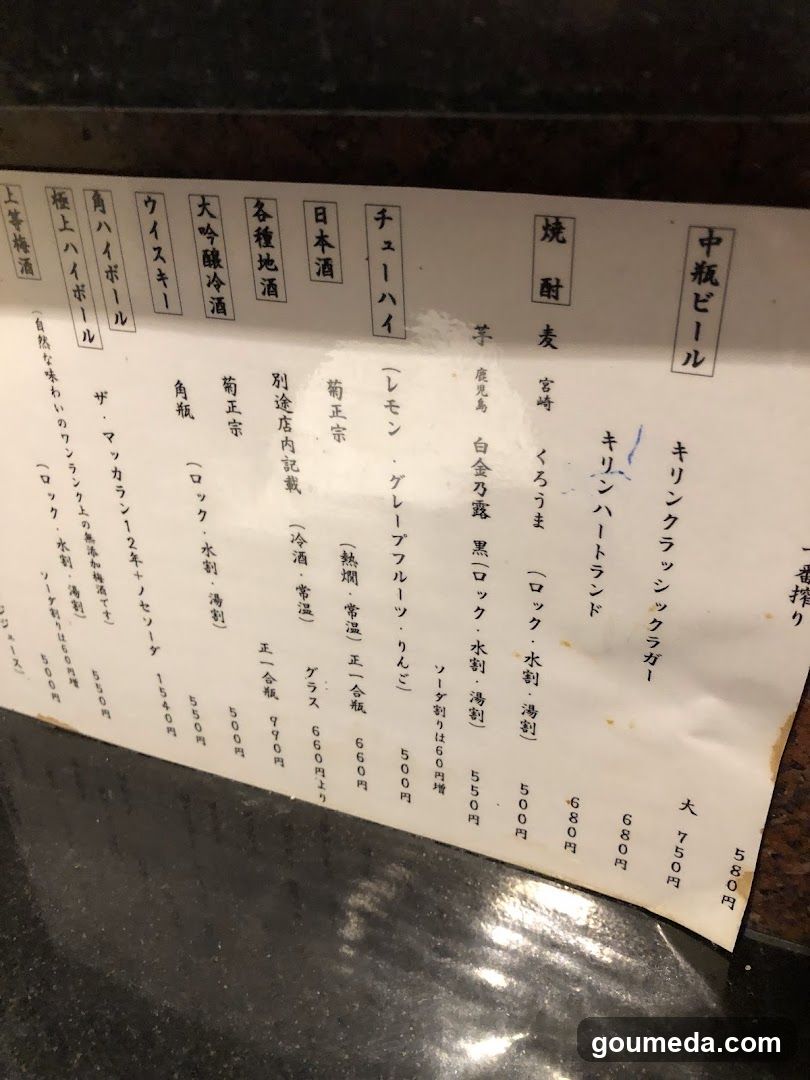 一番搾り
580円
大 750円
中瓶ビール キリンクラッシックラガー 680円
キリンハートランド 680円
焼酎 麦 宮崎 くろうま (ロック・水割・湯割) 500円
芋 鹿児島 白金乃露 黒(ロック・水割・湯割) 550円
ソーダ割りは60円増
チューハイ (レモン・グレープフルーツ・りんご) 500円
日本酒 菊正宗 (熱燗・常温) 正一合瓶 660円
各種地酒 別途店内記載 (冷酒・常温) グラス 660円より
大吟醸冷酒 菊正宗 正一合瓶 990円
ウイスキー 角瓶 (ロック・水割・湯割) 500円
角ハイボール 550円
極上ハイボール ザ・マッカラン12年+ノセソーダ 1540円
上等梅酒 (自然な味わいのワンランク上の無添加梅酒です) 550円
(ロック・水割・湯割)
ソーダ割りは60円増
500円
goumeda.com